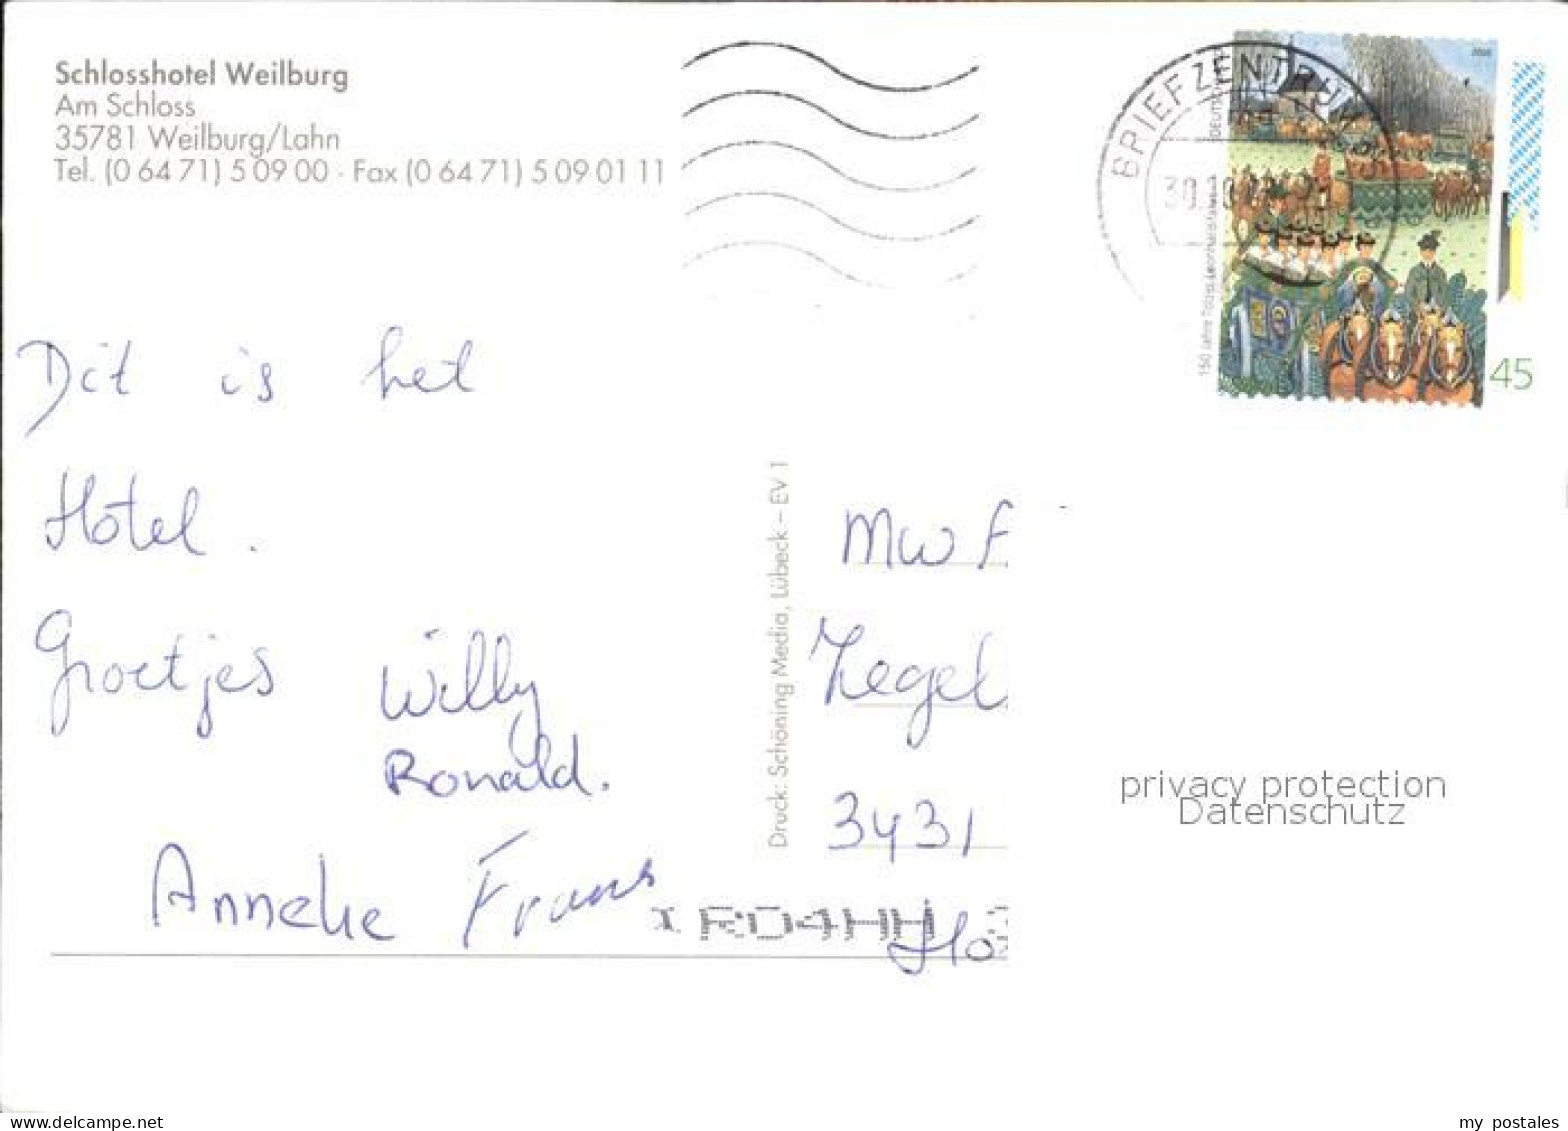 Schlosshotel Weilburg
Am Schloss
35781 Weilburg/Lahn
Tel. (0 64 71) 5 09 00 · Fax (0 64 71) 5 09 01 11
BRIEFZENTRUM
45
Dit is het
Hotel.
Groetjes Willy
Ronald.
Anneke Frans
Druck: Schöning Media, Lübeck – EV 1
MW F
Zegel
3431
Ho
privacy protection
Datenschutz
www.delcampe.net
my postales